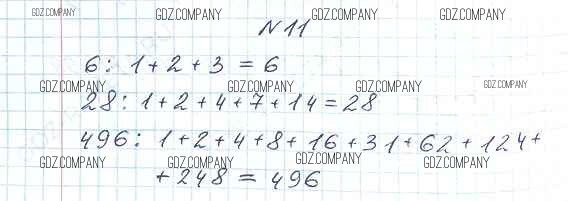 GDZ.COMPANY GDZ.COMPANY GDZ.COMPANY GDZ.COMPANY
N 11
6: 1+2+3 = 6
GDZ.COMPANY GDZ.COMPANY GDZ.COMPANY GDZ.COMPANY
28: 1+2+4+7+14=28
496: 1+2+4+8+16+31+62+124+
GDZ.COMPANY GDZ.COMPANY GDZ.COMPANY GDZ.COMPANY
+248 = 496